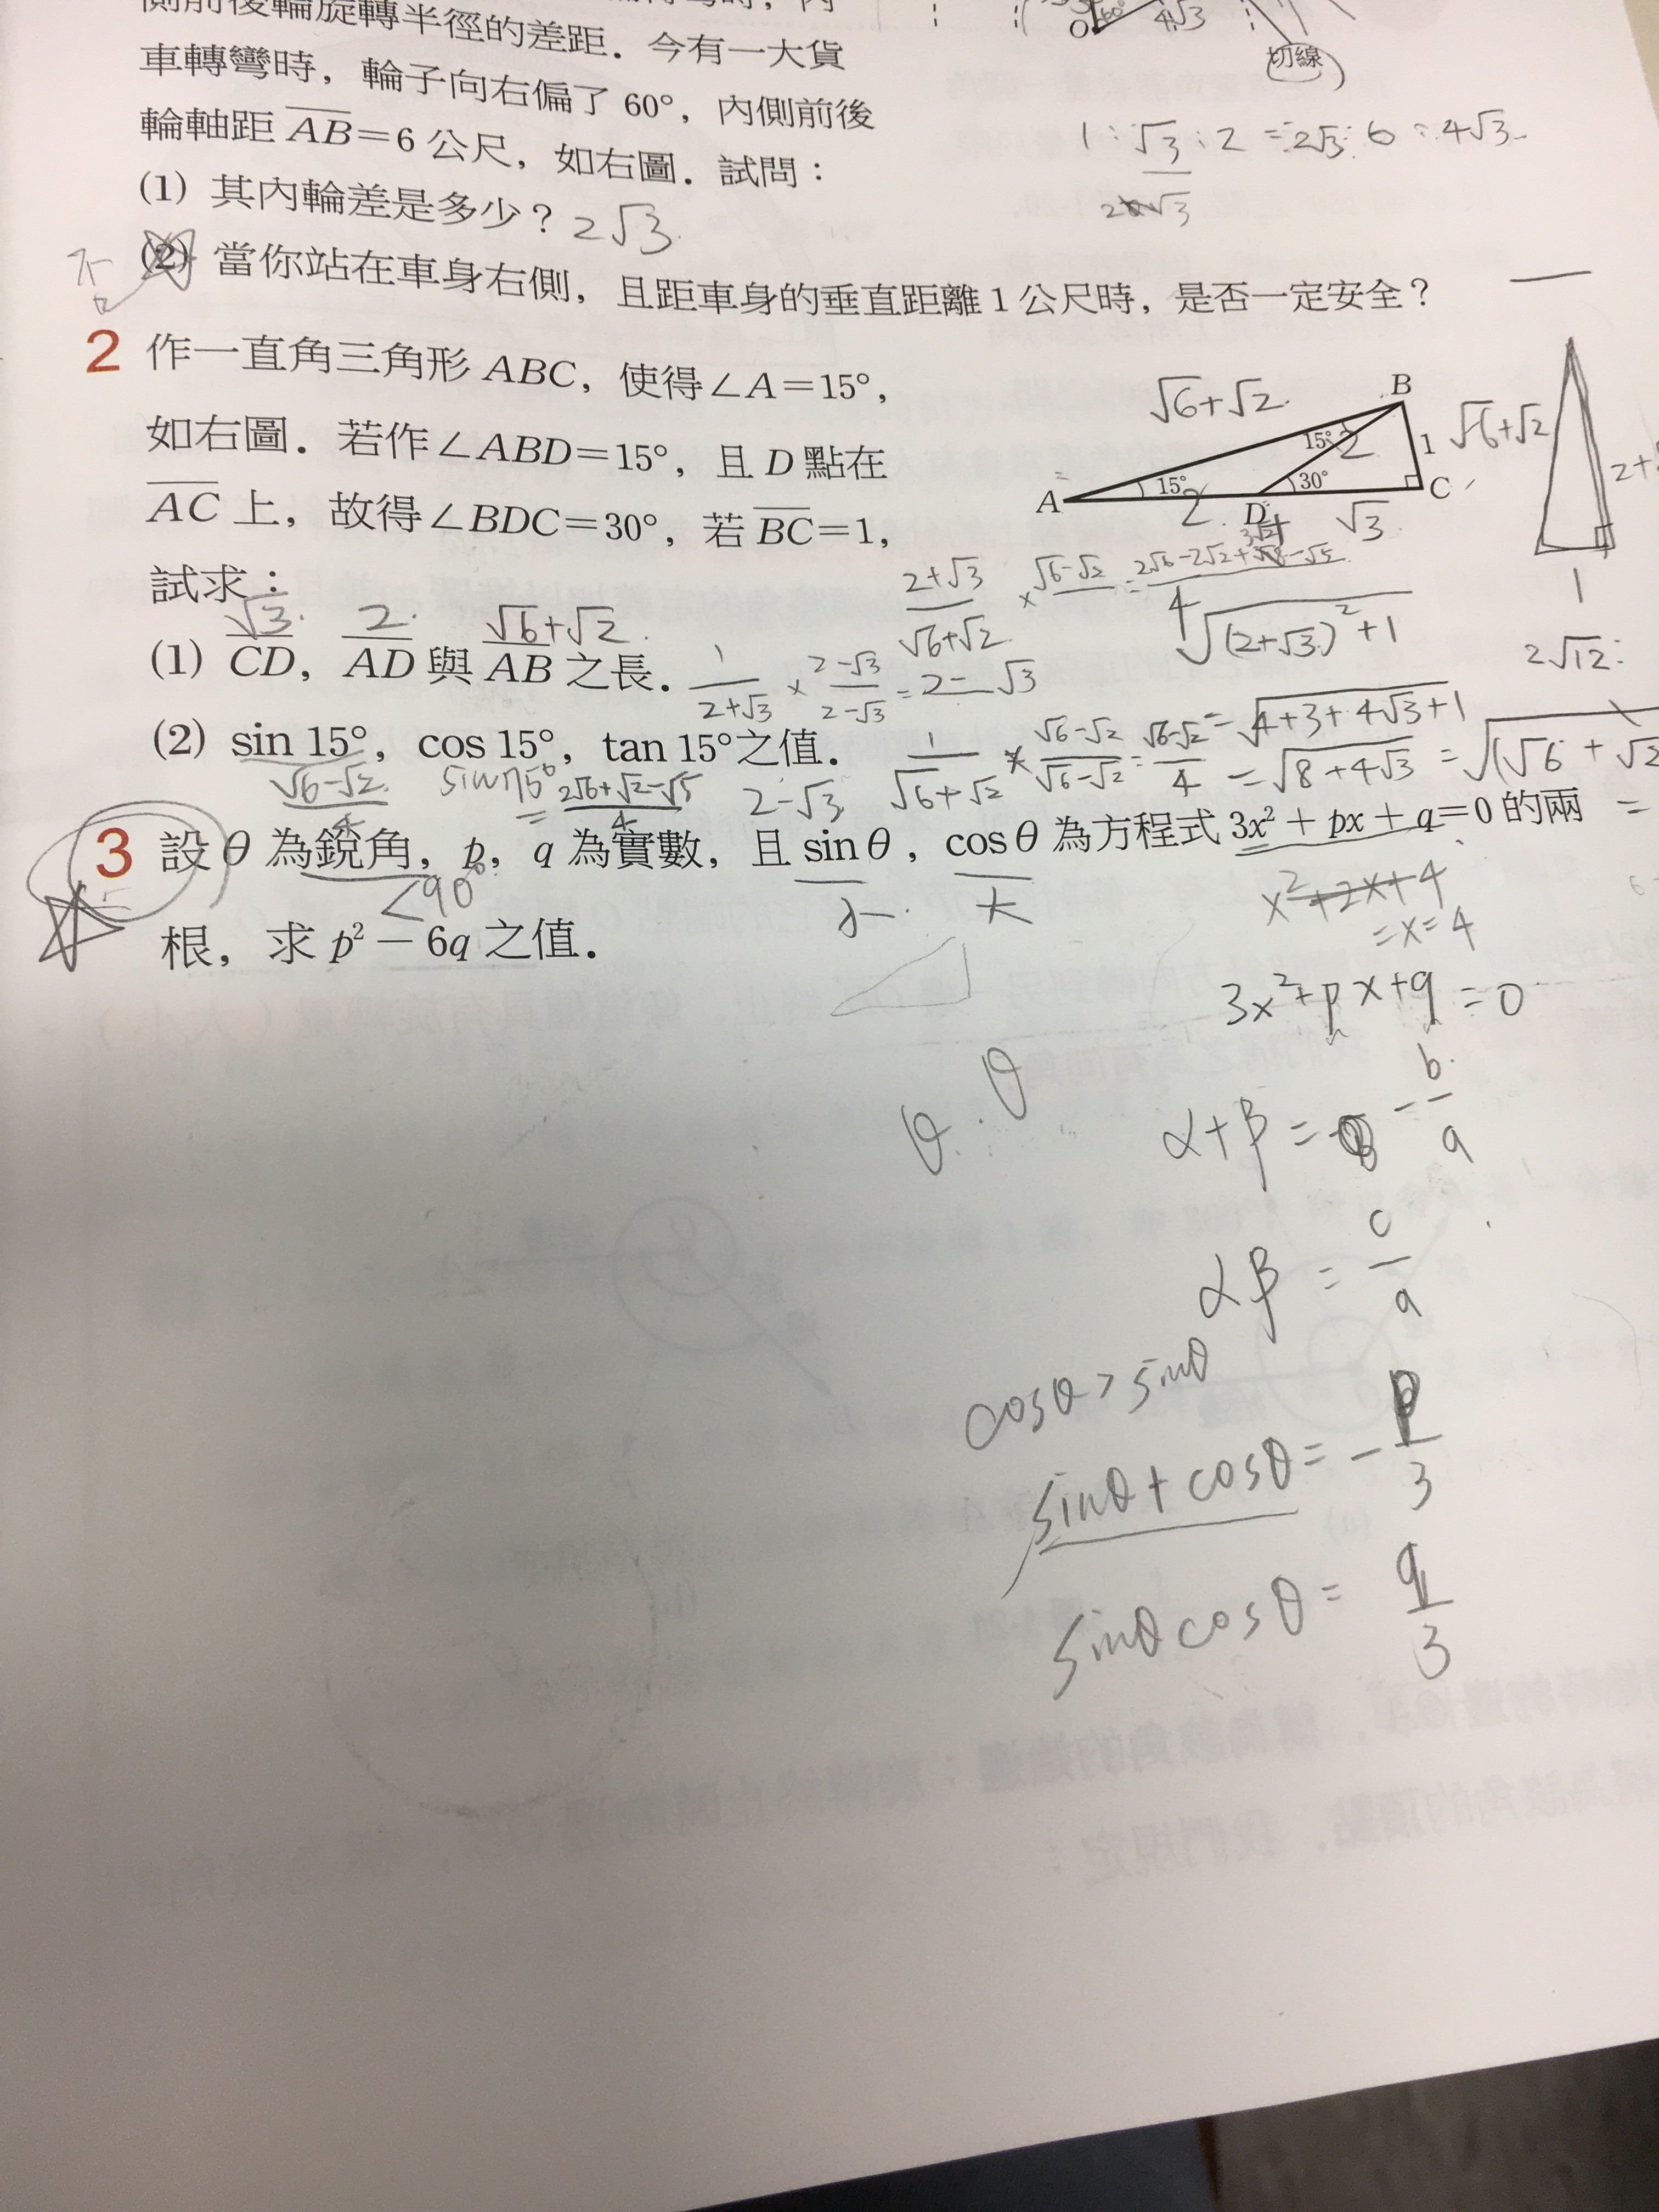 側前後輪旋轉半徑的差距．今有一大貨
車轉彎時，輪子向右偏了 60°，內側前後
輪軸距 AB＝6 公尺，如右圖．試問：
O 60° 4√3
切線
1 : √3 : 2 = 2√3 : 6 : 4√3
2√3
(1) 其內輪差是多少？ 2√3
(2) 當你站在車身右側，且距車身的垂直距離 1 公尺時，是否一定安全？
不
2 作一直角三角形 ABC，使得∠A＝15°，
如右圖．若作∠ABD＝15°，且 D 點在
AC 上，故得∠BDC＝30°，若 BC＝1，
試求：
√6+√2 B
15° 2 1
A 15° 2 D 30° √3 C
√6+√2
1
√3 2 √6+√2
(1) CD，AD 與 AB 之長．
1/(2+√3) × (2-√3)/(2-√3) = 2-√3
(2+√3)/(√6+√2) × √6-√2
√((2+√3)²+1)
2√12
(2) sin 15°，cos 15°，tan 15°之值．
(√6-√2)/4 sin75° 2-√3
1/(√6+√2) × (√6-√2)/(√6-√2) = (√6-√2)/4
= √(4+3+4√3+1)
= √(8+4√3) = √(√6+√2
3 設 θ 為銳角，p，q 為實數，且 sin θ，cos θ 為方程式 3x² + px + q＝0 的兩
<90°
根，求 p² − 6q 之值．
x²+2x+4
=x=4
3x²+px+q=0
θ . θ
α+β = -b/a
αβ = c/a
cosθ > sinθ
sinθ + cosθ = -p/3
sinθ cosθ = q/3